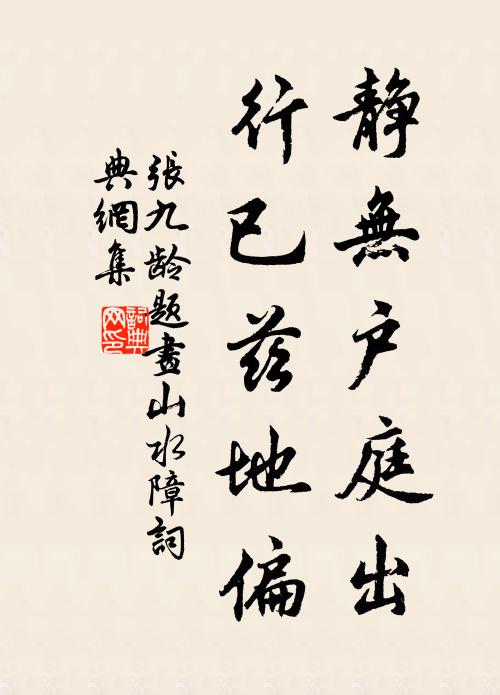 静無户庭出
行已茲地偏
張九龄題畫山水障詞
典網集
詞典
网印